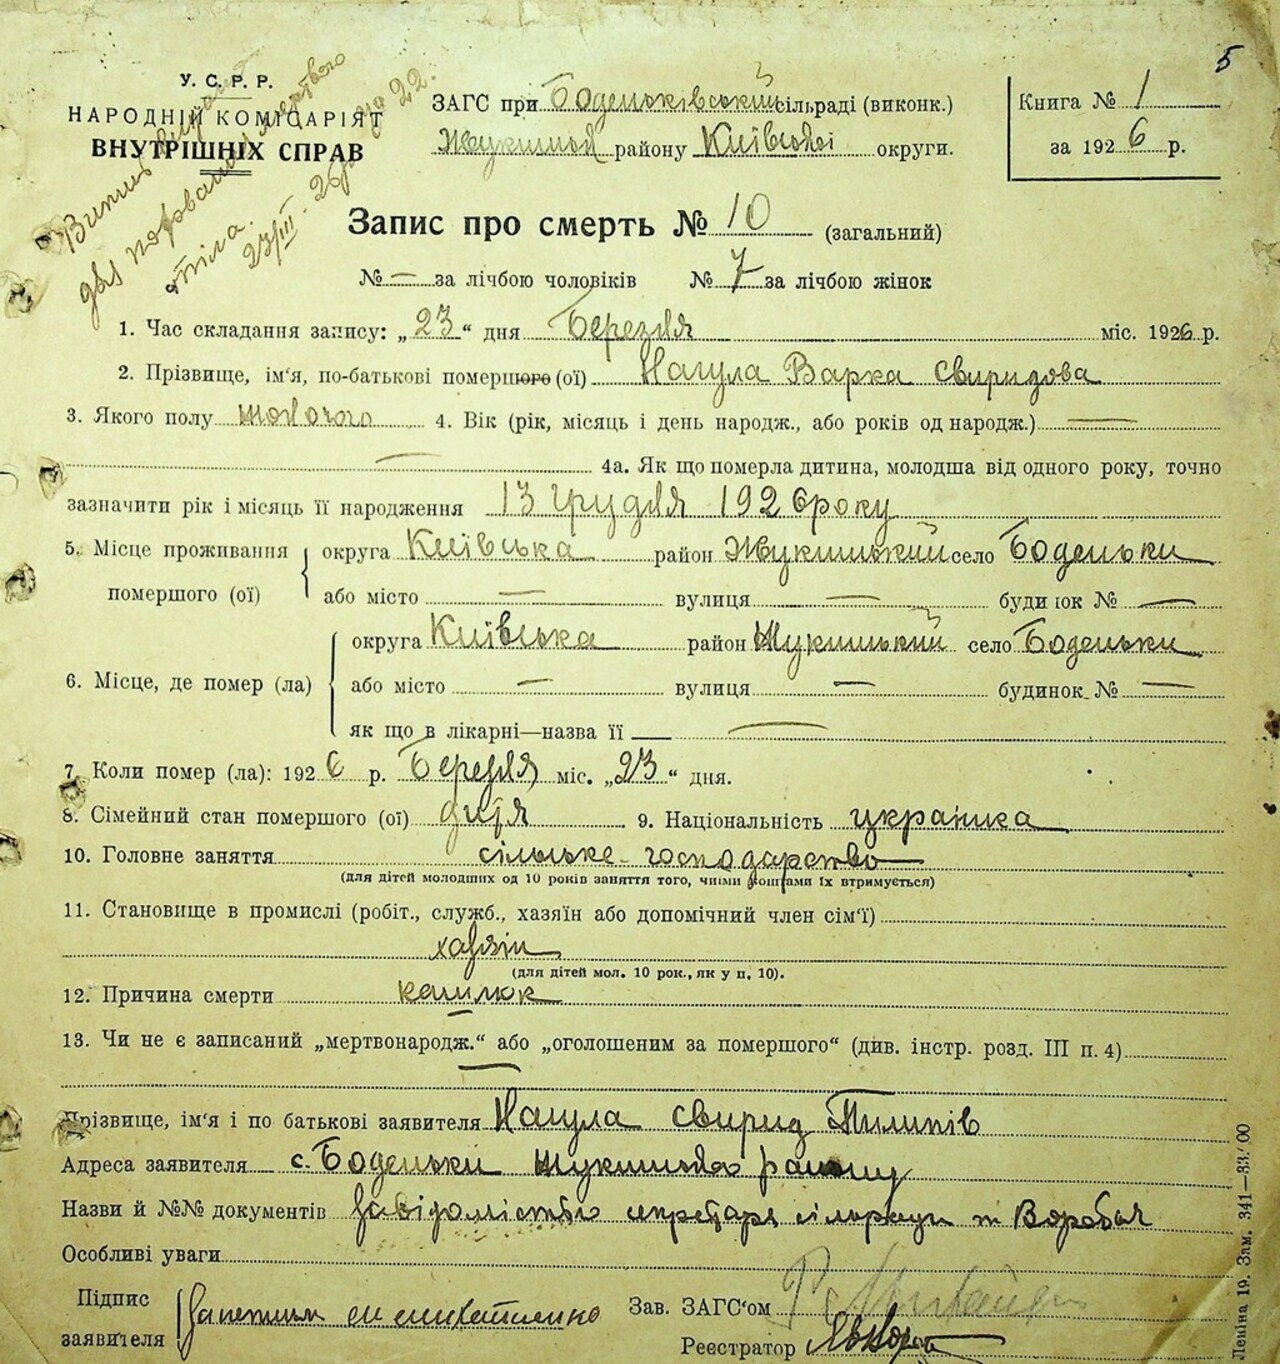 5
У. С. Р. Р.
НАРОДНІЙ КОМІСАРІЯТ
ВНУТРІШНІХ СПРАВ
Випис видано
для поховання мертвого
тіла.
23/III - 26р № 22.
ЗАГС при Боденьківській сільраді (виконк.)
Жукинськ району Київської округи.
Книга № 1
за 1926 р.
Запис про смерть № 10 (загальний)
№ — за лічбою чоловіків № 7 за лічбою жінок
1. Час складання запису: „23“ дня Березля міс. 1926 р.
2. Прізвище, ім'я, по-батькові помершого (ої) Нагула Варка Свиридова
3. Якого полу жіночого 4. Вік (рік, місяць і день народж., або років од народж.) —
— 4а. Як що померла дитина, молодша від одного року, точно
зазначити рік і місяць її народження 13 Грудля 1926 року
5. Місце проживання помершого (ої) округа Київська район Жукинський село Боденьки
або місто — вулиця — будинок № —
6. Місце, де помер (ла) округа Київська район Жукинський село Боденьки
або місто — вулиця — будинок № —
як що в лікарні—назва її —
7. Коли помер (ла): 1926 р. Березля міс. „23“ дня.
8. Сімейний стан помершого (ої) дитя 9. Національність українка
10. Головне заняття сільське-господарство
(для дітей молодших од 10 років заняття того, чиїми коштами їх втримується)
11. Становище в промислі (робіт., служб., хазяїн або допомічний член сім'ї)
хазяін
(для дітей мол. 10 рок., як у п. 10).
12. Причина смерти кашлюк
13. Чи не є записаний „мертвонародж.“ або „оголошеним за помершого“ (див. інстр. розд. III п. 4)
—
Прізвище, ім'я і по батькові заявителя Нагула Свирид Пилипів
Адреса заявителя с. Боденьки Жукинського району
Назви й №№ документів завідомістю секретаря сільради т Воробья
Особливі уваги
Підпис заявителя
Зав. ЗАГС'ом
Реєстратор
Леніна 19. Зам. 341—33.00